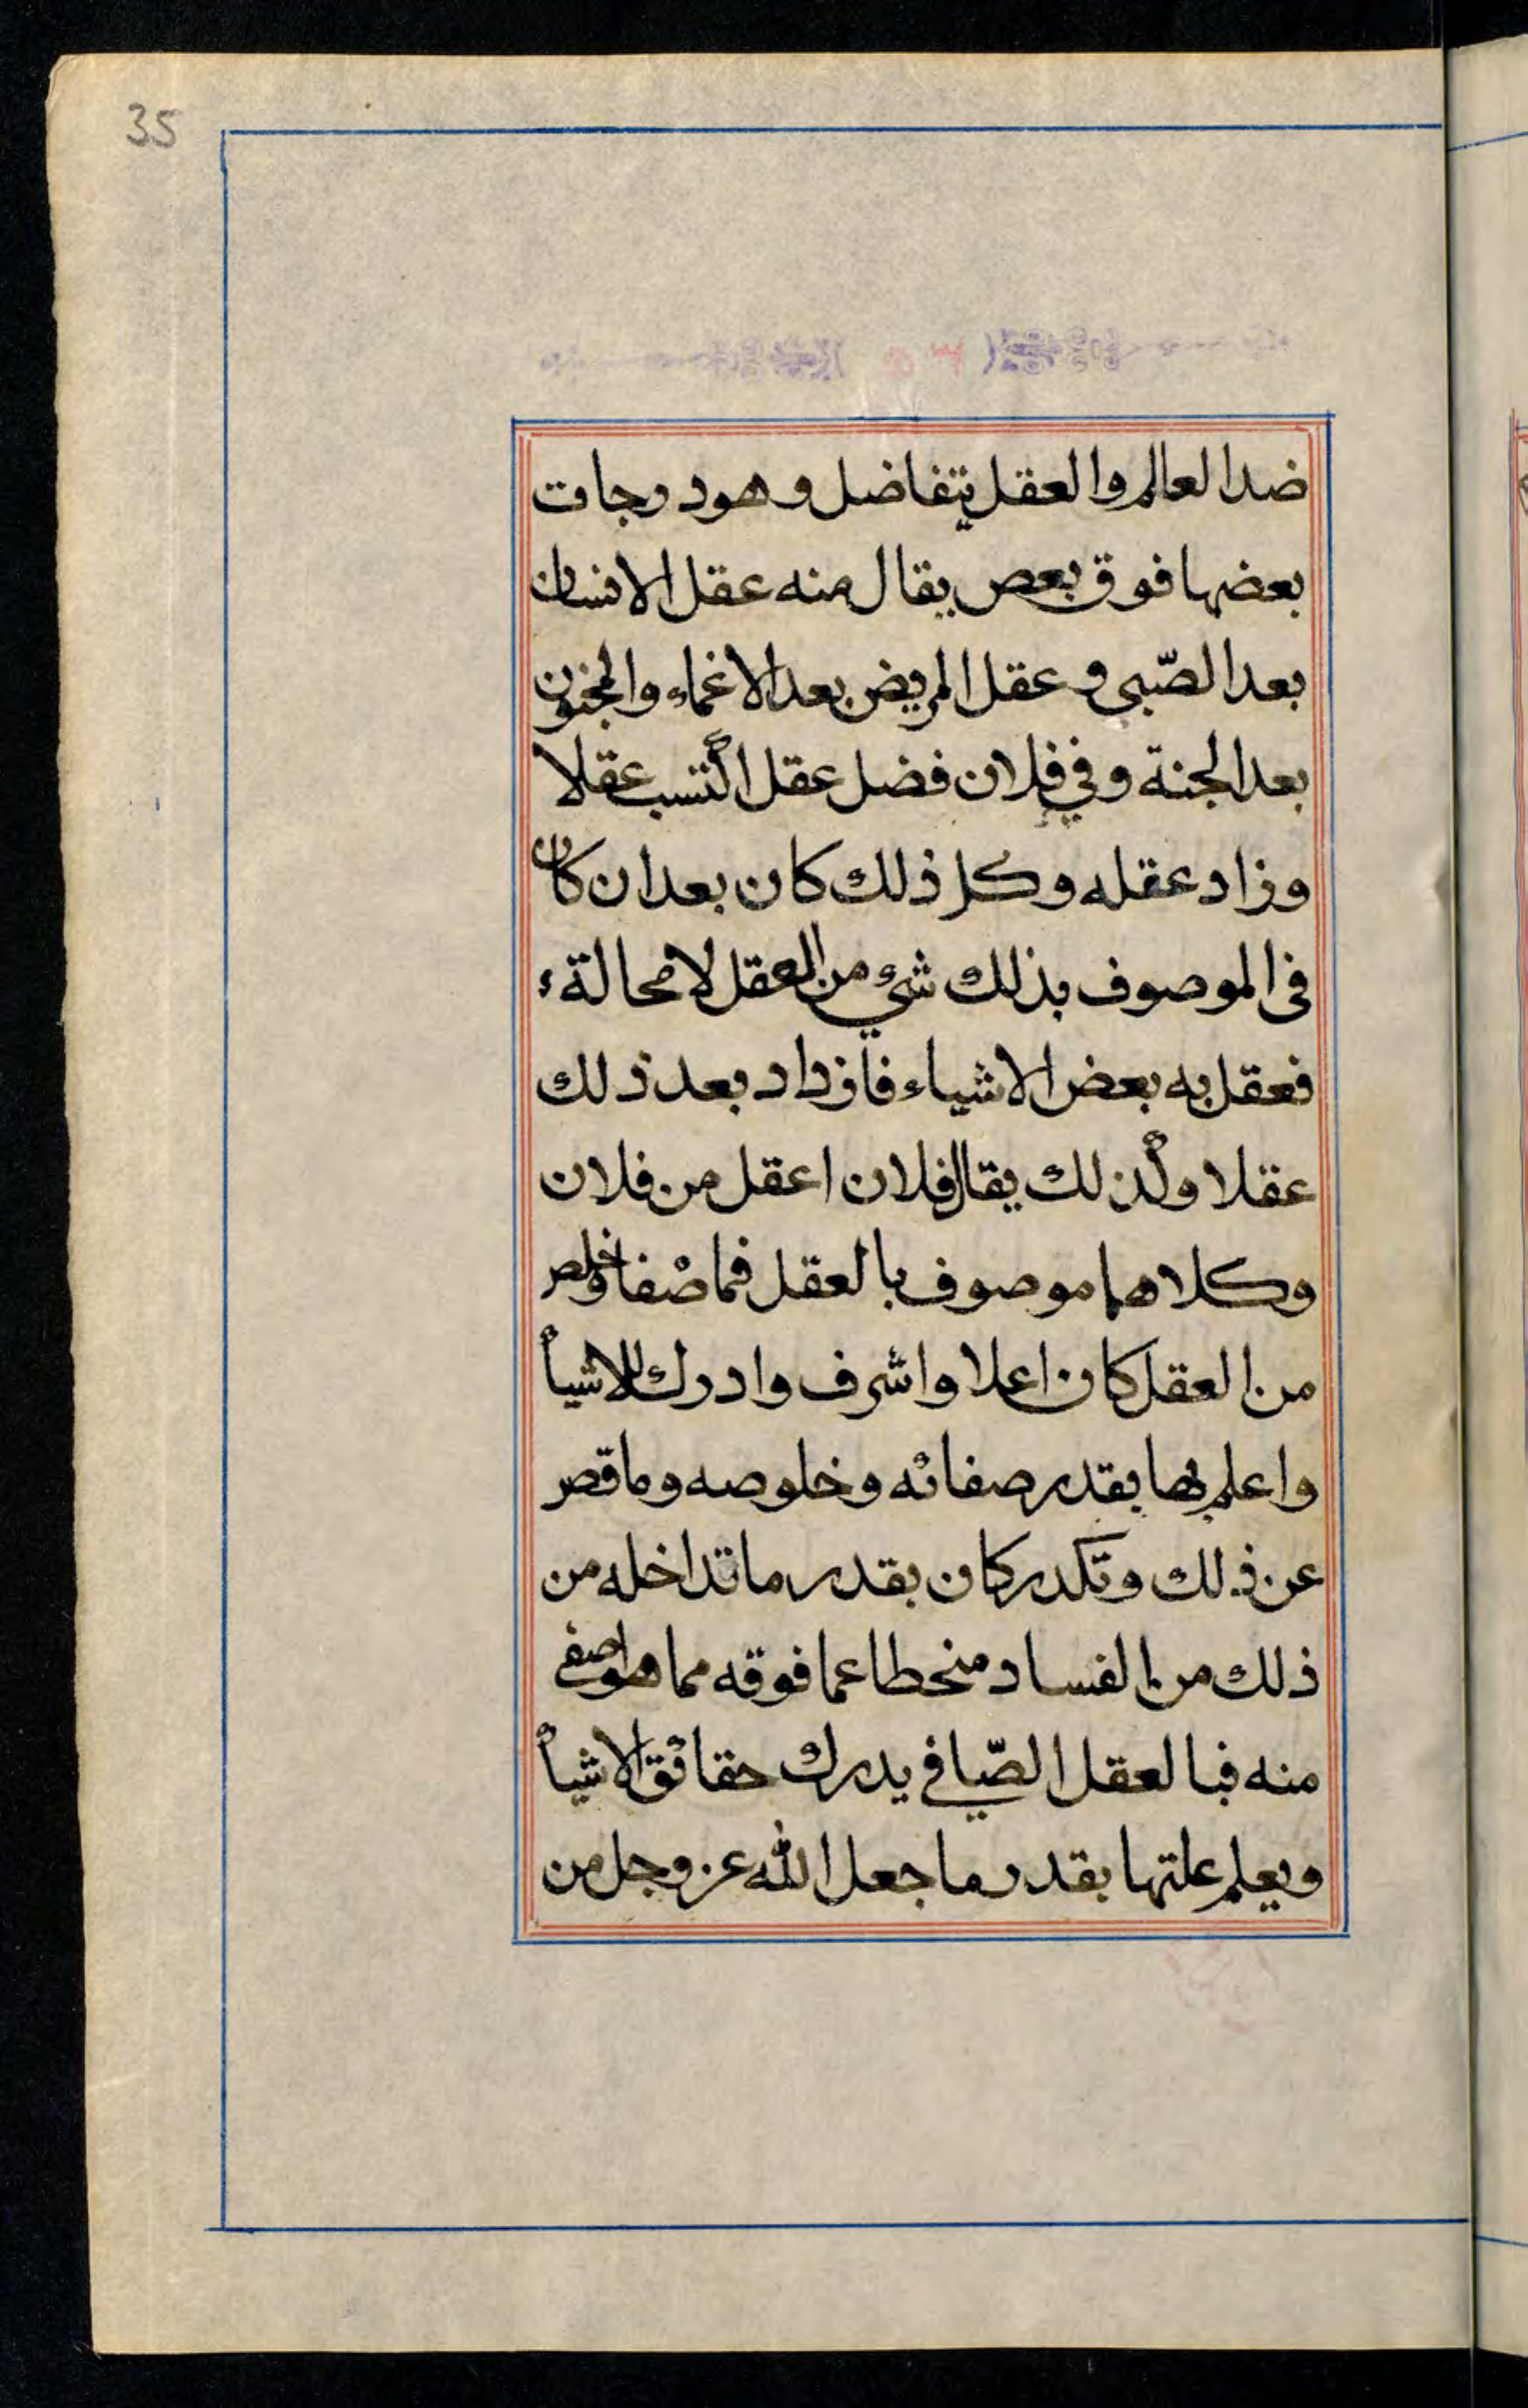 35
ضد العالم والعقل يتفاضل وهو درجات
بعضها فوق بعص يقال منه عقل الانسان
بعد الصّبى وعقل المريض بعد الاغماء والمجنون
بعد الجنة وفي فلان فضل عقل اكتسب عقلا
وزاد عقله وكل ذلك كان بعد ان كان
فى الموصوف بذلك شئ من العقل لا محالة
فعقل به بعض الاشياء فازداد بعد ذلك
عقلا ولذلك يقال فلان اعقل من فلان
وكلاهما موصوف بالعقل فما صفا وخلص
من العقل كان اعلا واشرف وادرك للاشيأ
واعلم بها بقدر صفائه وخلوصه وما قصر
عن ذلك وتكدر كان بقدر ما تداخله من
ذلك من الفساد منحطا عما فوقه مما هو اصفى
منه فبالعقل الصّافي يدرك حقائق الاشيأ
ويعلم علتها بقدر ما جعل الله عز وجل من